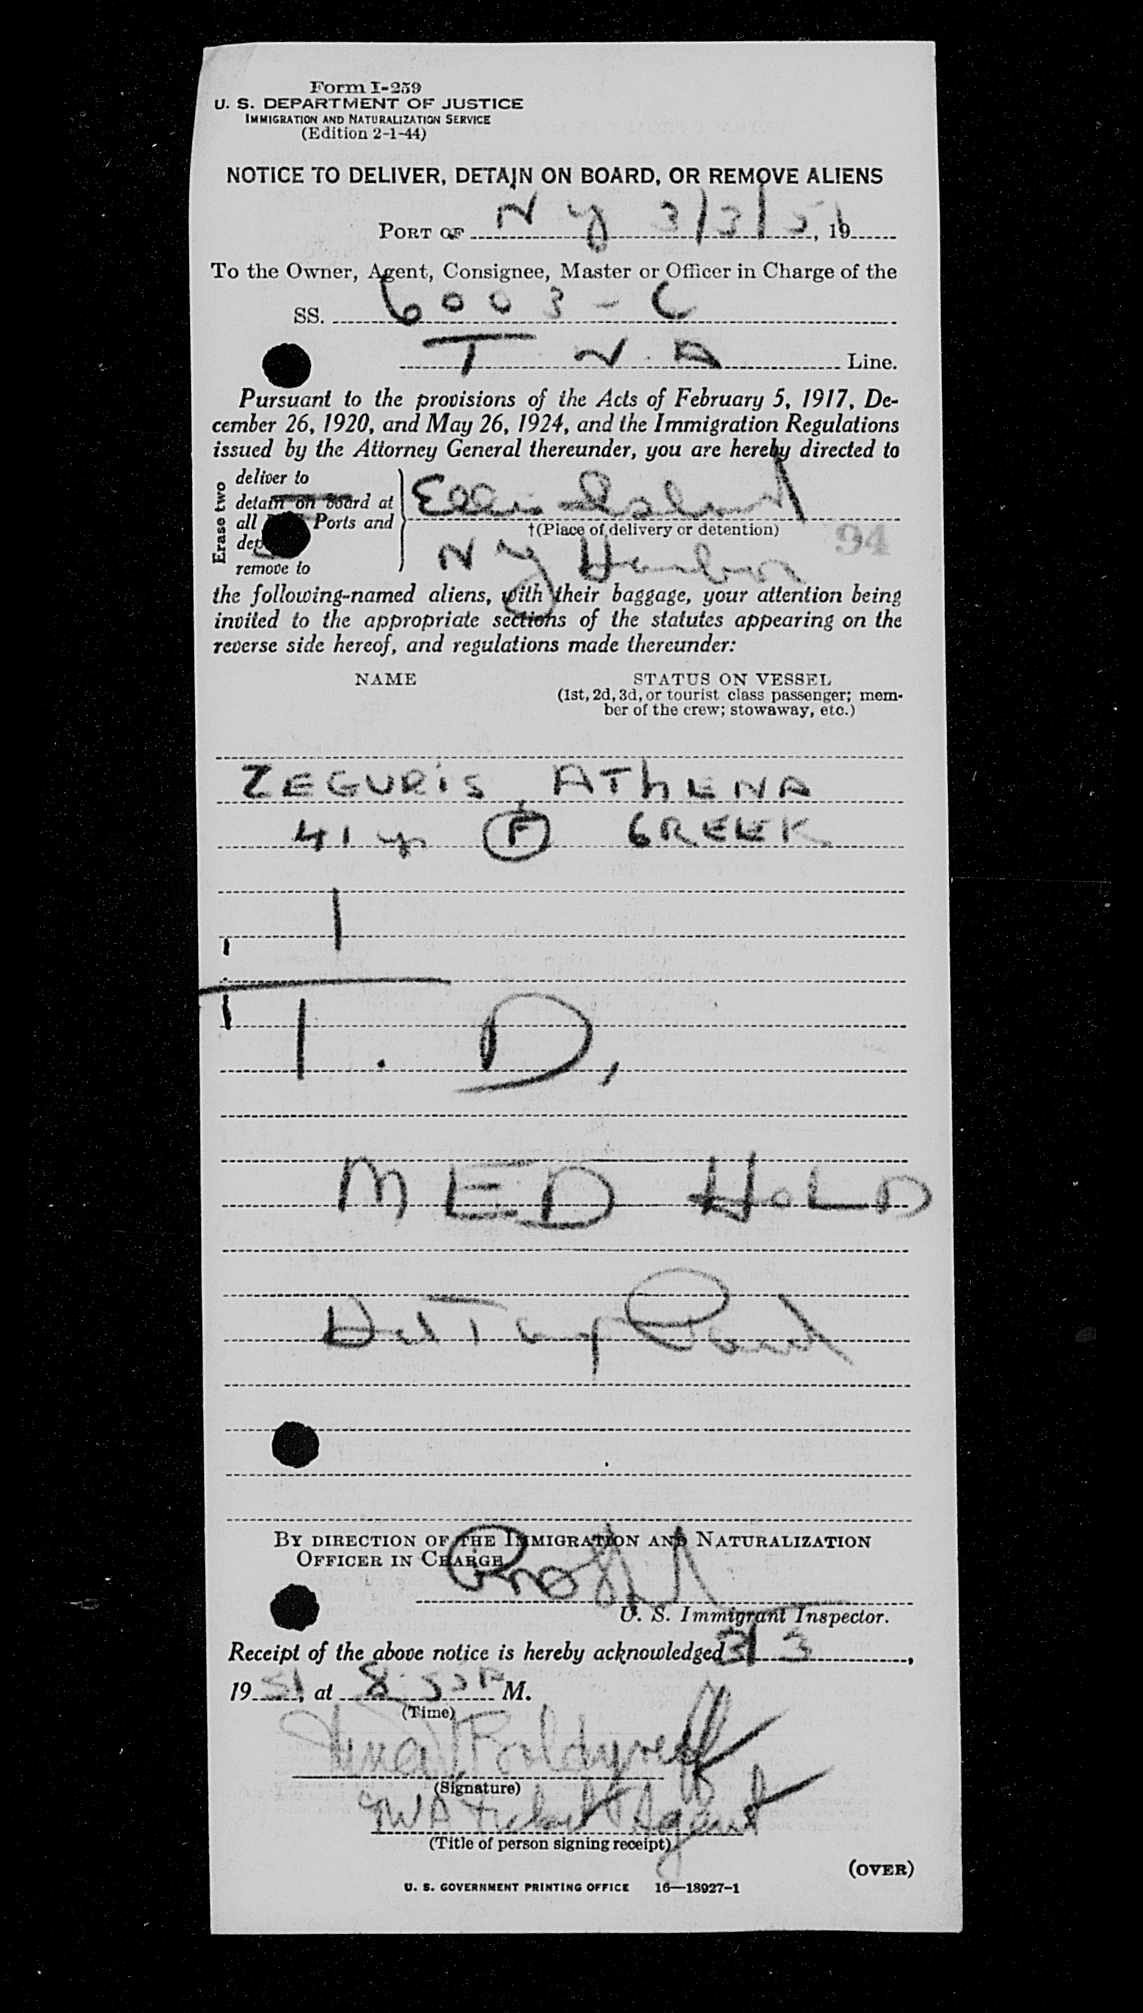 Form I-259
U. S. DEPARTMENT OF JUSTICE
IMMIGRATION AND NATURALIZATION SERVICE
(Edition 2-1-44)
NOTICE TO DELIVER, DETAIN ON BOARD, OR REMOVE ALIENS
PORT OF N Y 3/3/51, 19
To the Owner, Agent, Consignee, Master or Officer in Charge of the
SS. 6003-C
T W A Line.
Pursuant to the provisions of the Acts of February 5, 1917, De-
cember 26, 1920, and May 26, 1924, and the Immigration Regulations
issued by the Attorney General thereunder, you are hereby directed to
Erase two
deliver to
detain on board at
all Ports and
remove to
Ellis Island
†(Place of delivery or detention)
94
N Y Harbor
the following-named aliens, with their baggage, your attention being
invited to the appropriate sections of the statutes appearing on the
reverse side hereof, and regulations made thereunder:
NAME STATUS ON VESSEL
(1st, 2d, 3d, or tourist class passenger; mem-
ber of the crew; stowaway, etc.)
ZEGURIS, ATHENA
41 yr F GREEK
1
T. D,
MED HOLD
BY DIRECTION OF THE IMMIGRATION AND NATURALIZATION
OFFICER IN CHARGE
U. S. Immigrant Inspector.
Receipt of the above notice is hereby acknowledged 3/3,
19 51, at 8 P M.
(Time)
Boldyreff
(Signature)
TWA Ticket Agent
(Title of person signing receipt)
(OVER)
U. S. GOVERNMENT PRINTING OFFICE 16—18927-1